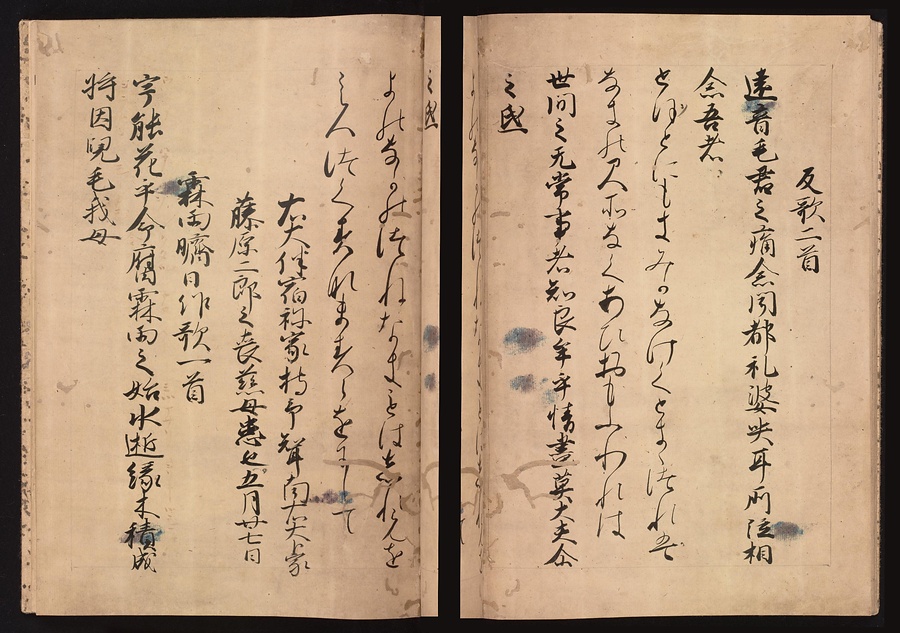 反歌二首
遠音毛君之痛念聞都礼婆哭耳所泣相
念吾者
とほとにもきみかなけくときつれは
なきのみそなくあひおもふわれは
世間之无常事者知良牟乎情盡莫大夫尒
之氐
よのなかのつねなきことはしるらんを
こゝろつくすなますらをにして
右大伴宿祢家持弔聟南右大臣家
藤原二郎之喪慈母患也五月廿七日
霖雨晴日作歌一首
宇能花乎令腐霖雨之始水逝縁木積成
将因兒毛我母